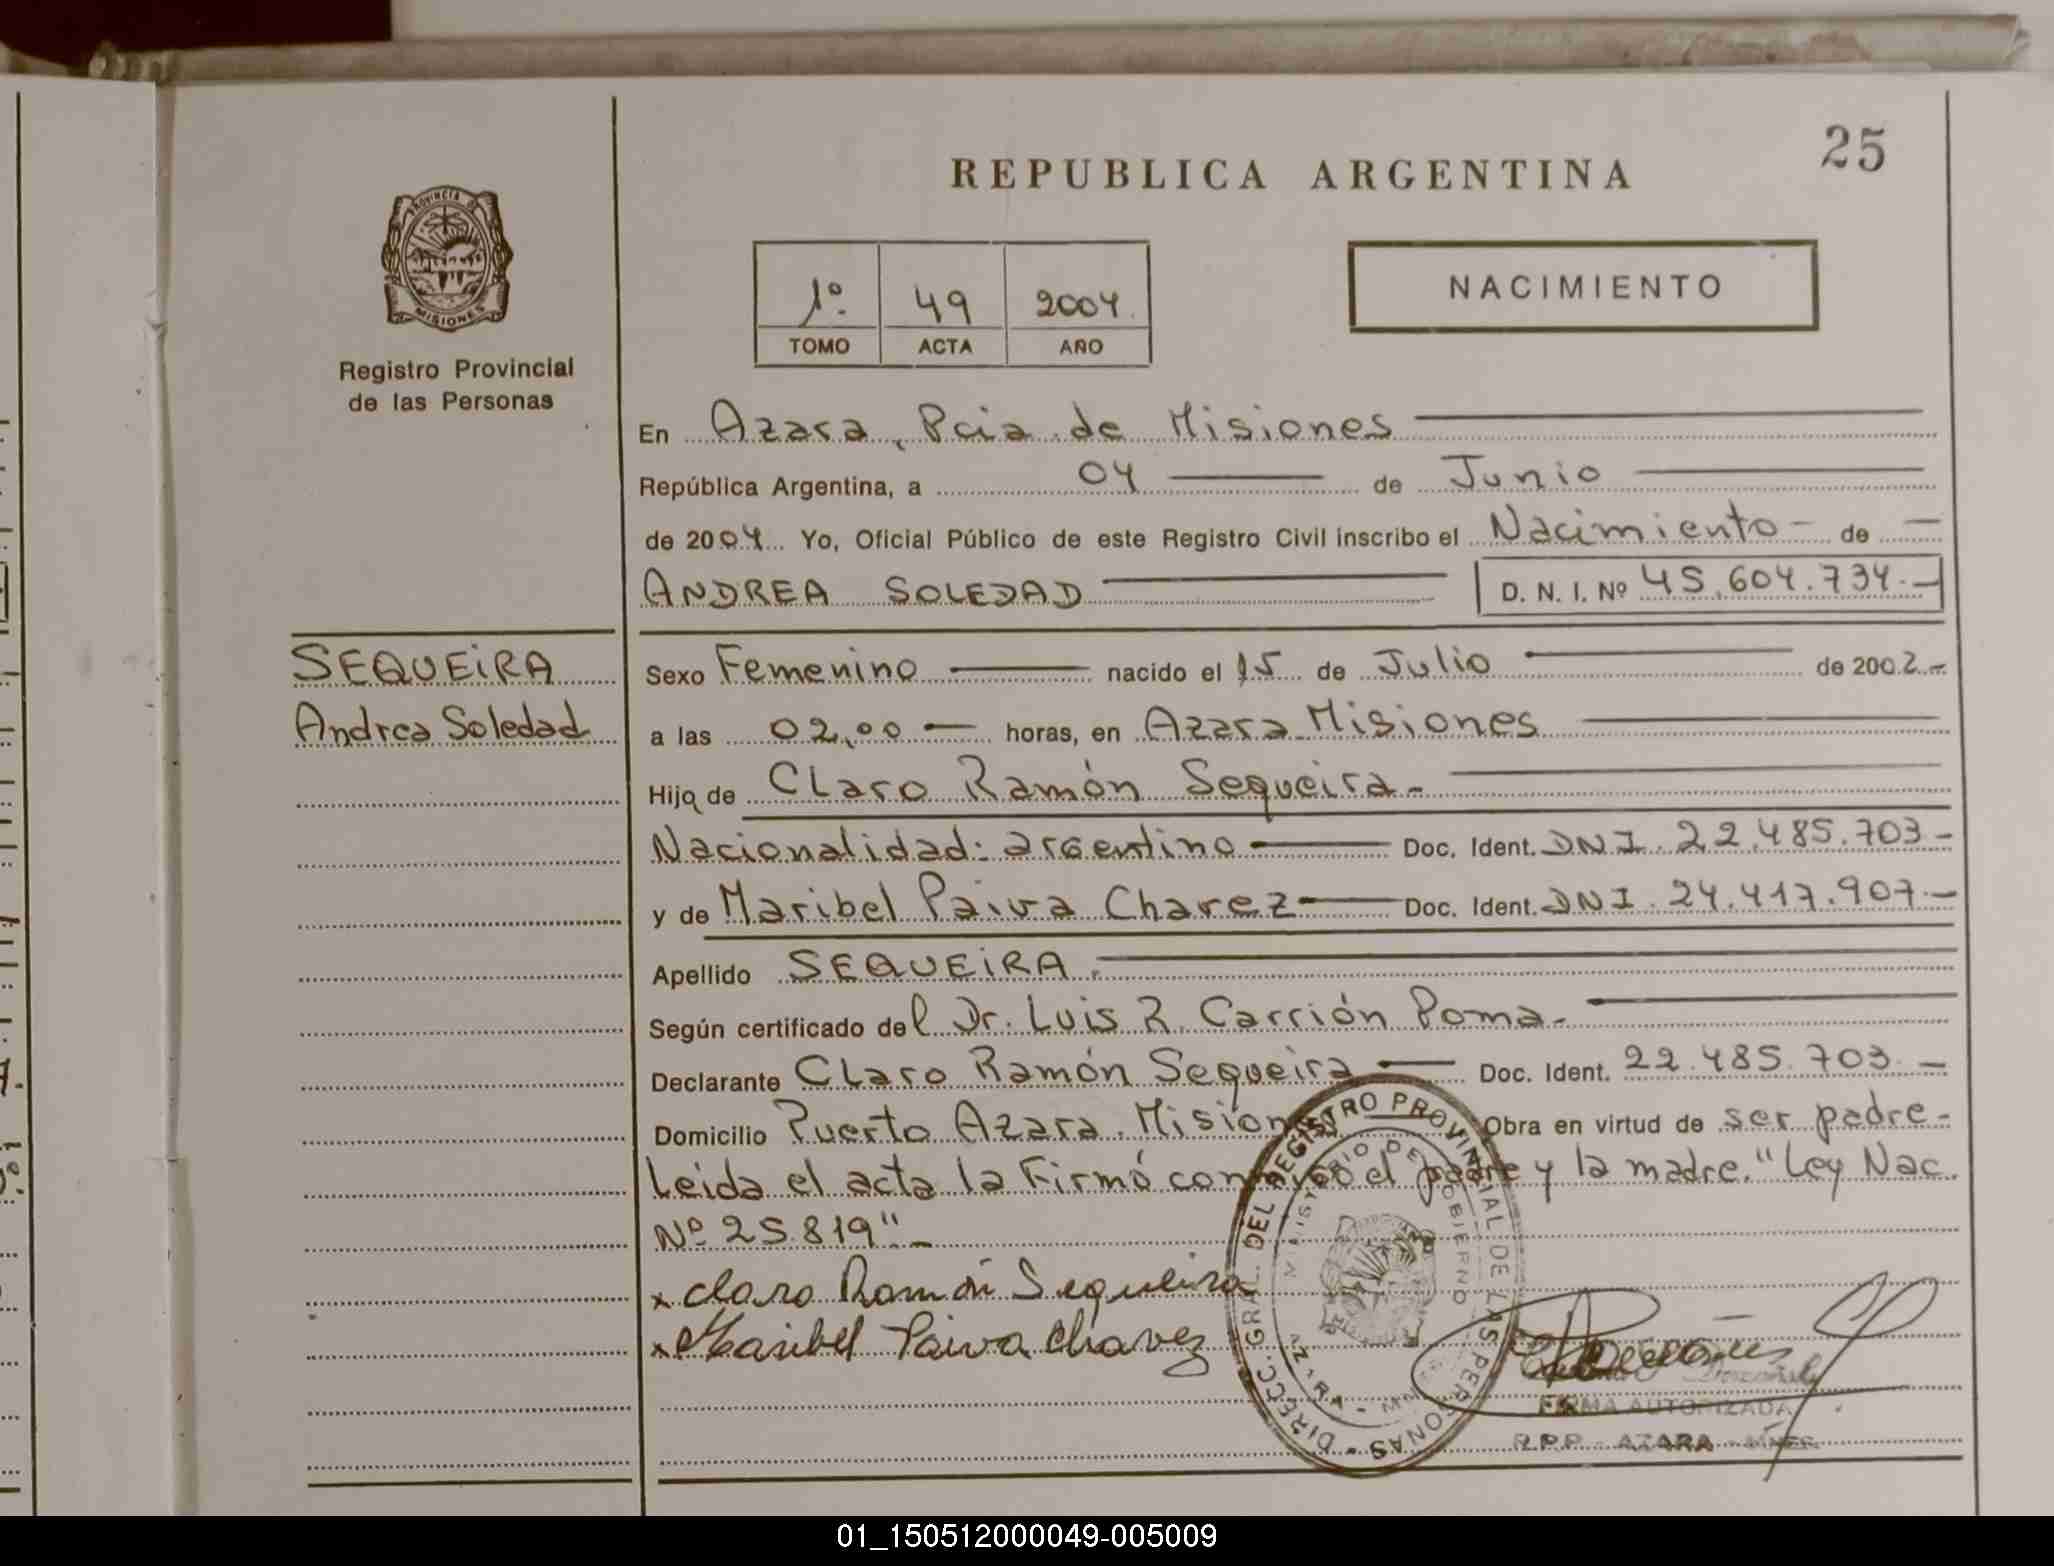 25
REPUBLICA ARGENTINA
PROVINCIA DE
MISIONES
Registro Provincial
de las Personas
1º. 49 2004.
TOMO ACTA AÑO
NACIMIENTO
En Azara, Pcia de Misiones
República Argentina, a 04 de Junio
de 2004 Yo, Oficial Público de este Registro Civil inscribo el Nacimiento - de -
ANDREA SOLEDAD D. N. I. Nº 45.604.734.-
SEQUEIRA
Andrea Soledad
Sexo Femenino nacido el 15 de Julio de 2002.-
a las 02,00 - horas, en Azara Misiones
Hija de Claro Ramón Sequeira.-
Nacionalidad: argentino Doc. Ident. DNI. 22.485.703-
y de Maribel Paiva Chavez Doc. Ident. DNI. 24.417.907.-
Apellido SEQUEIRA.
Según certificado del Dr. Luis R. Carrión Poma.-
Declarante Claro Ramón Sequeira Doc. Ident. 22.485.703.-
Domicilio Puerto Azara. Misiones Obra en virtud de ser padre-
Leida el acta la Firmó conmigo el padre y la madre. "Ley Nac.
Nº 25.819".-
x Claro Ramón Sequeira
x Maribel Paiva Chavez
DIRECC. GRAL. DEL REGISTRO PROVINCIAL DE LAS PERSONAS -
MINISTERIO DE GOBIERNO
AZARA - MNES
FIRMA AUTORIZADA
R.P.P - AZARA - MNES.
01_150512000049-005009